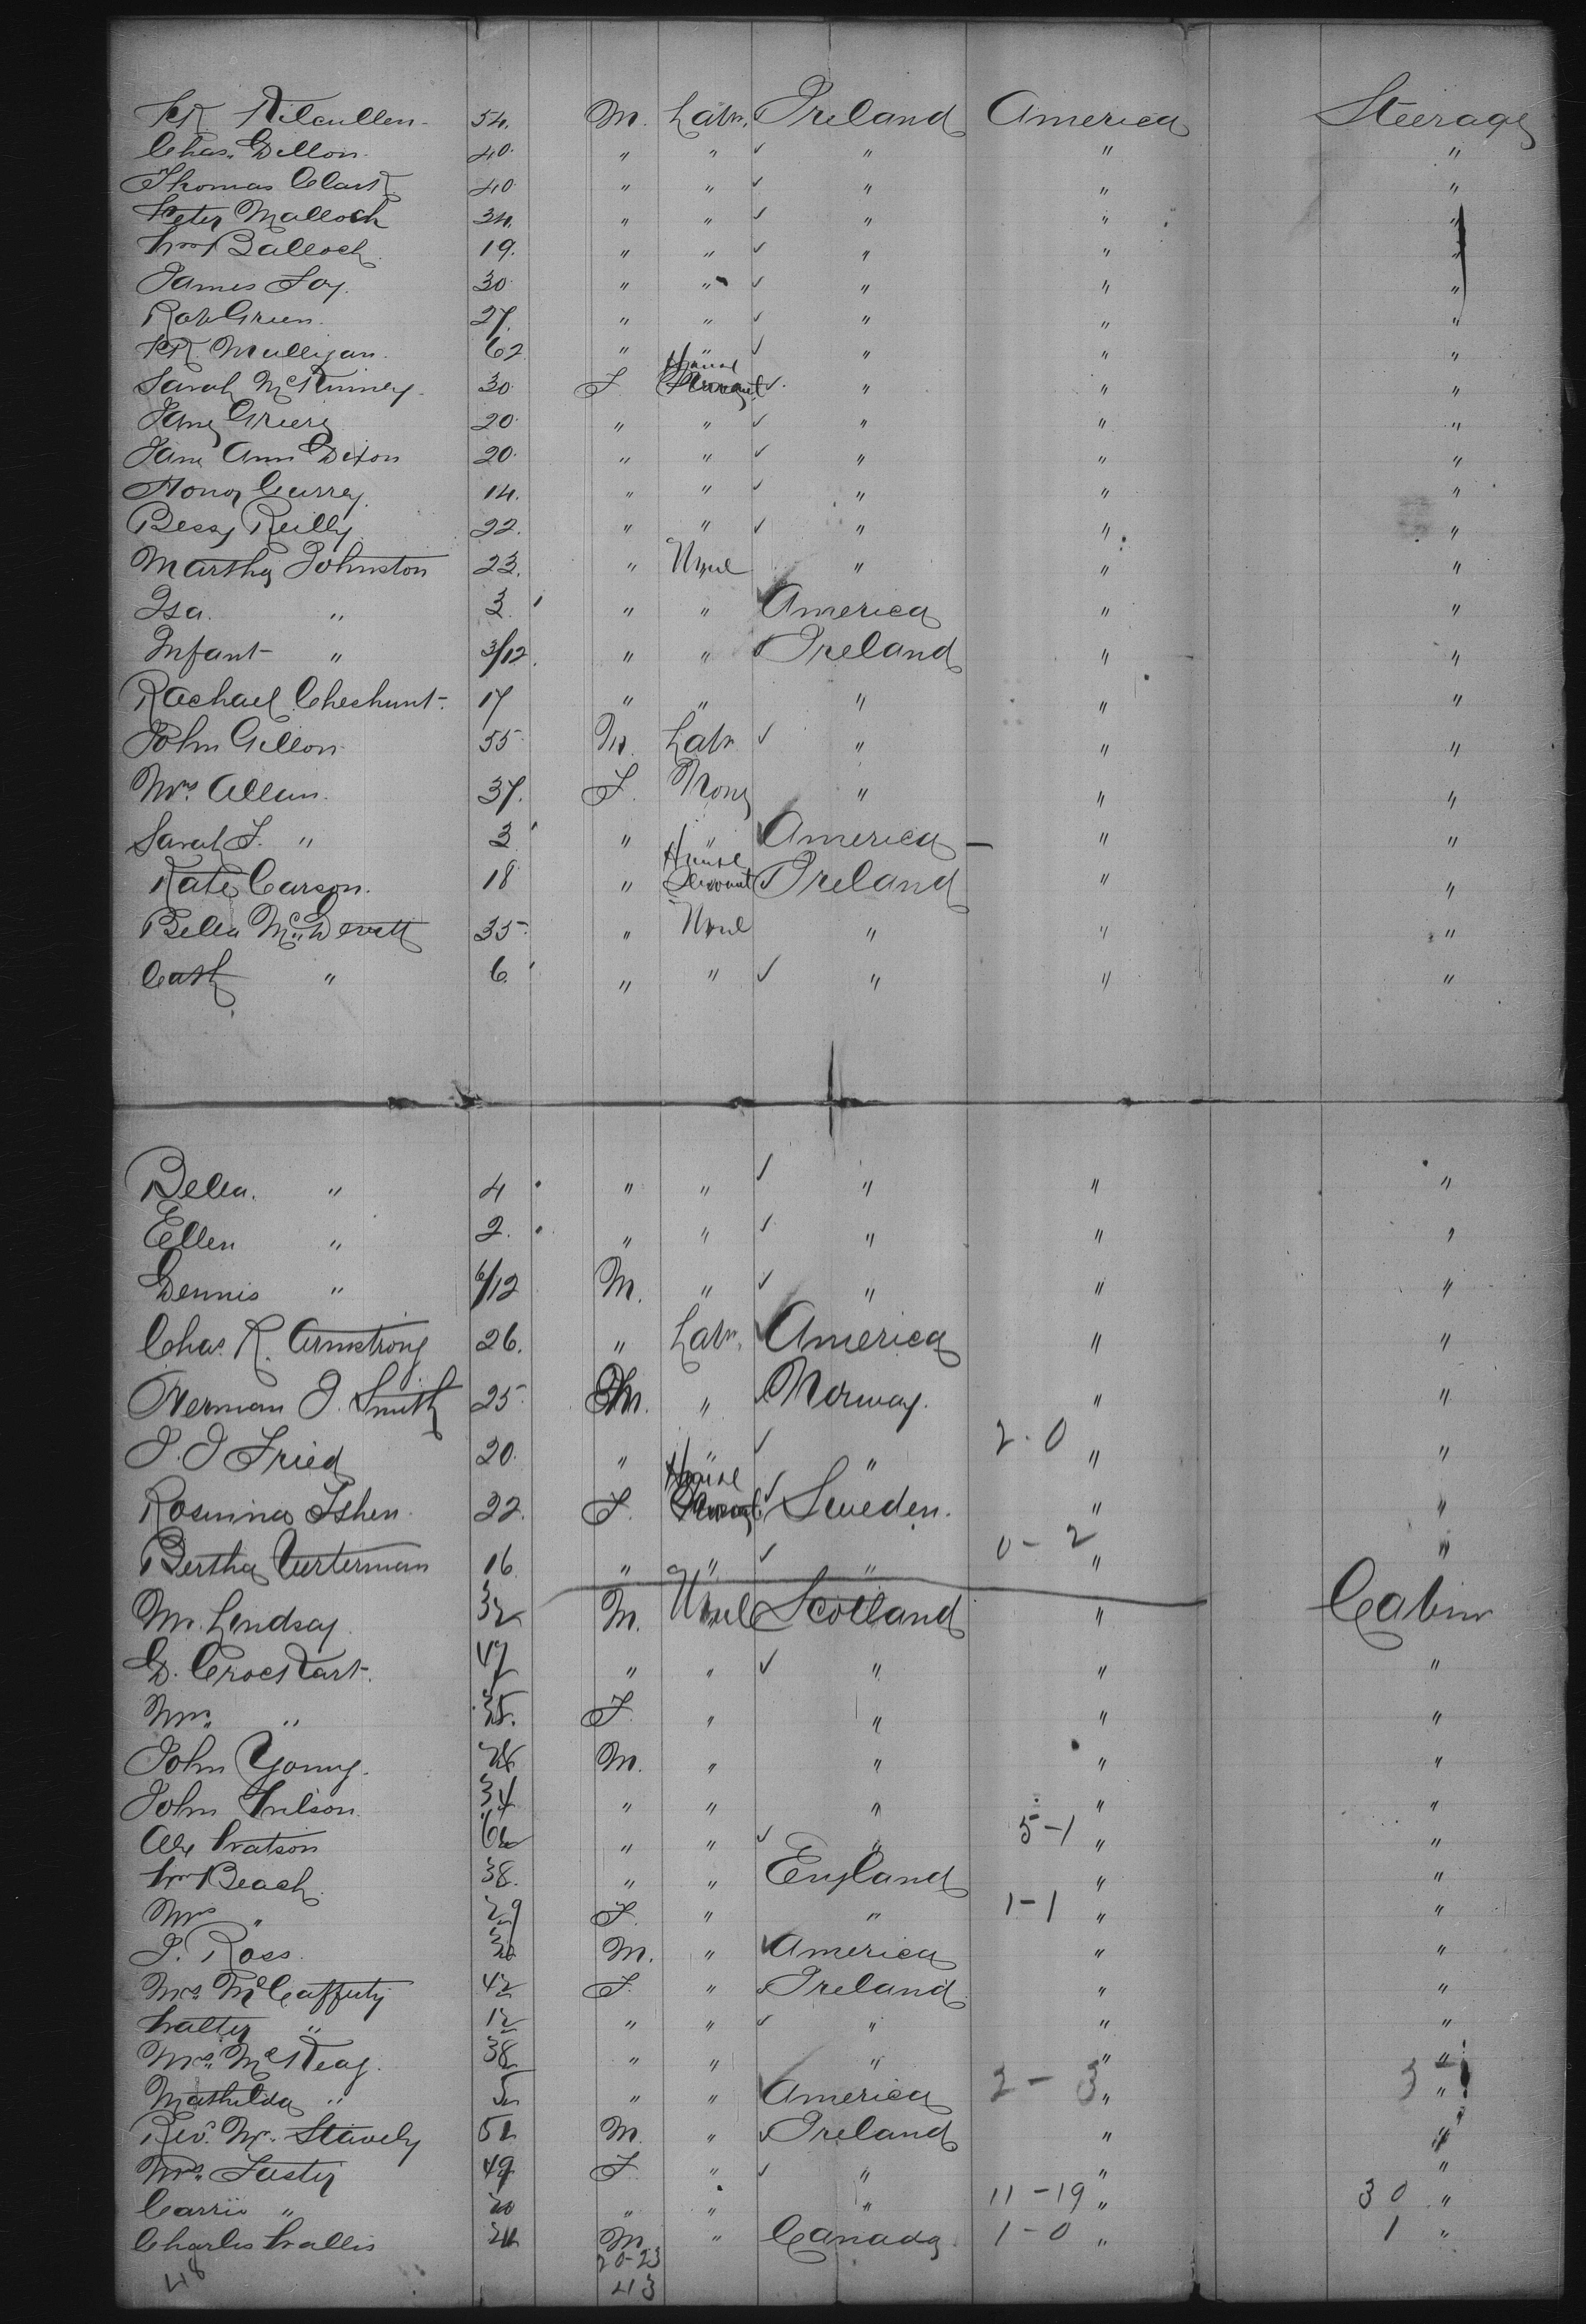 Pk Kilcullen 54. M. Labr. Ireland America Steerage
Chas. Dillon 40. " " ✓ " " "
Thomas Clark 40. " " ✓ " " "
Peter Malloch 34. " " ✓ " " "
Wm Balloch 19. " " ✓ " " "
James Foy 30. " " ✓ " " "
Robt Green 27. " " ✓ " " "
Pk. Mulligan 62 " " ✓ " " "
Sarah McKinney 30. F House Servant ✓ " " "
Jane Greer 20. " " ✓ " " "
Jane Ann Dixon 20. " " ✓ " " "
Honor Currey 14. " " ✓ " " "
Bessy Reilly 22. " " ✓ " " "
Martha Johnston 23. " " " "
Isa. " 3. " " ✓ America " "
Infant " 3/12. " " ✓ Ireland " "
Rachael Cheshunt 17 " " " " "
John Gillon 55 M. Labr ✓ " " "
Mrs. Allen. 37. F. None " " "
Sarah F. " 3 " " ✓ America — " "
Kate Carson. 18 " House Servant ✓ Ireland " "
Bella McDevitt 35. " " " "
Cath " 6. " " ✓ " " "
Bella. " 4 " " ✓ " " "
Ellen " 2. " " ✓ " " "
Dennis " 6/12 M. " ✓ " " "
Chas. R. Armstrong 26. " Labr. ✓ America " "
Herman J. Smith 25. M. " ✓ Norway. " "
J. J Fried 20. " " ✓ " 2-0 " "
Rosinna 22. F. House Servant ✓ Sweden. " "
Bertha 16 " " ✓ " 0-2 " "
Mr. Lindsay 32 M. Scotland " Cabin
D. Crockart. 47 " " ✓ " " "
Mrs. " 35. F. " " " "
John Young. M. " " " "
John Wilson. 34 " " " " "
Alex Watson " " ✓ " 5-1 " "
Wm Beach 38. " " England " "
Mrs " 29 F. " " 1-1 " "
J. Ross. 30 M. " ✓ America " "
Mrs. McCafferty 42 F. " ✓ Ireland " "
Walter " 12 " " ✓ " " "
Mrs. McKeag. 38 " " " " "
Mathilda " 5 " " ✓ America 2-3 " 3 "
Rev. Mr. Stavely M. " ✓ Ireland " "
Mrs. 49 F. " ✓ " " "
Carrie " 20 " " " 11-19 " 30 "
Charles Wallis M. " Canada 1-0 " 1 "
48 20-23
43